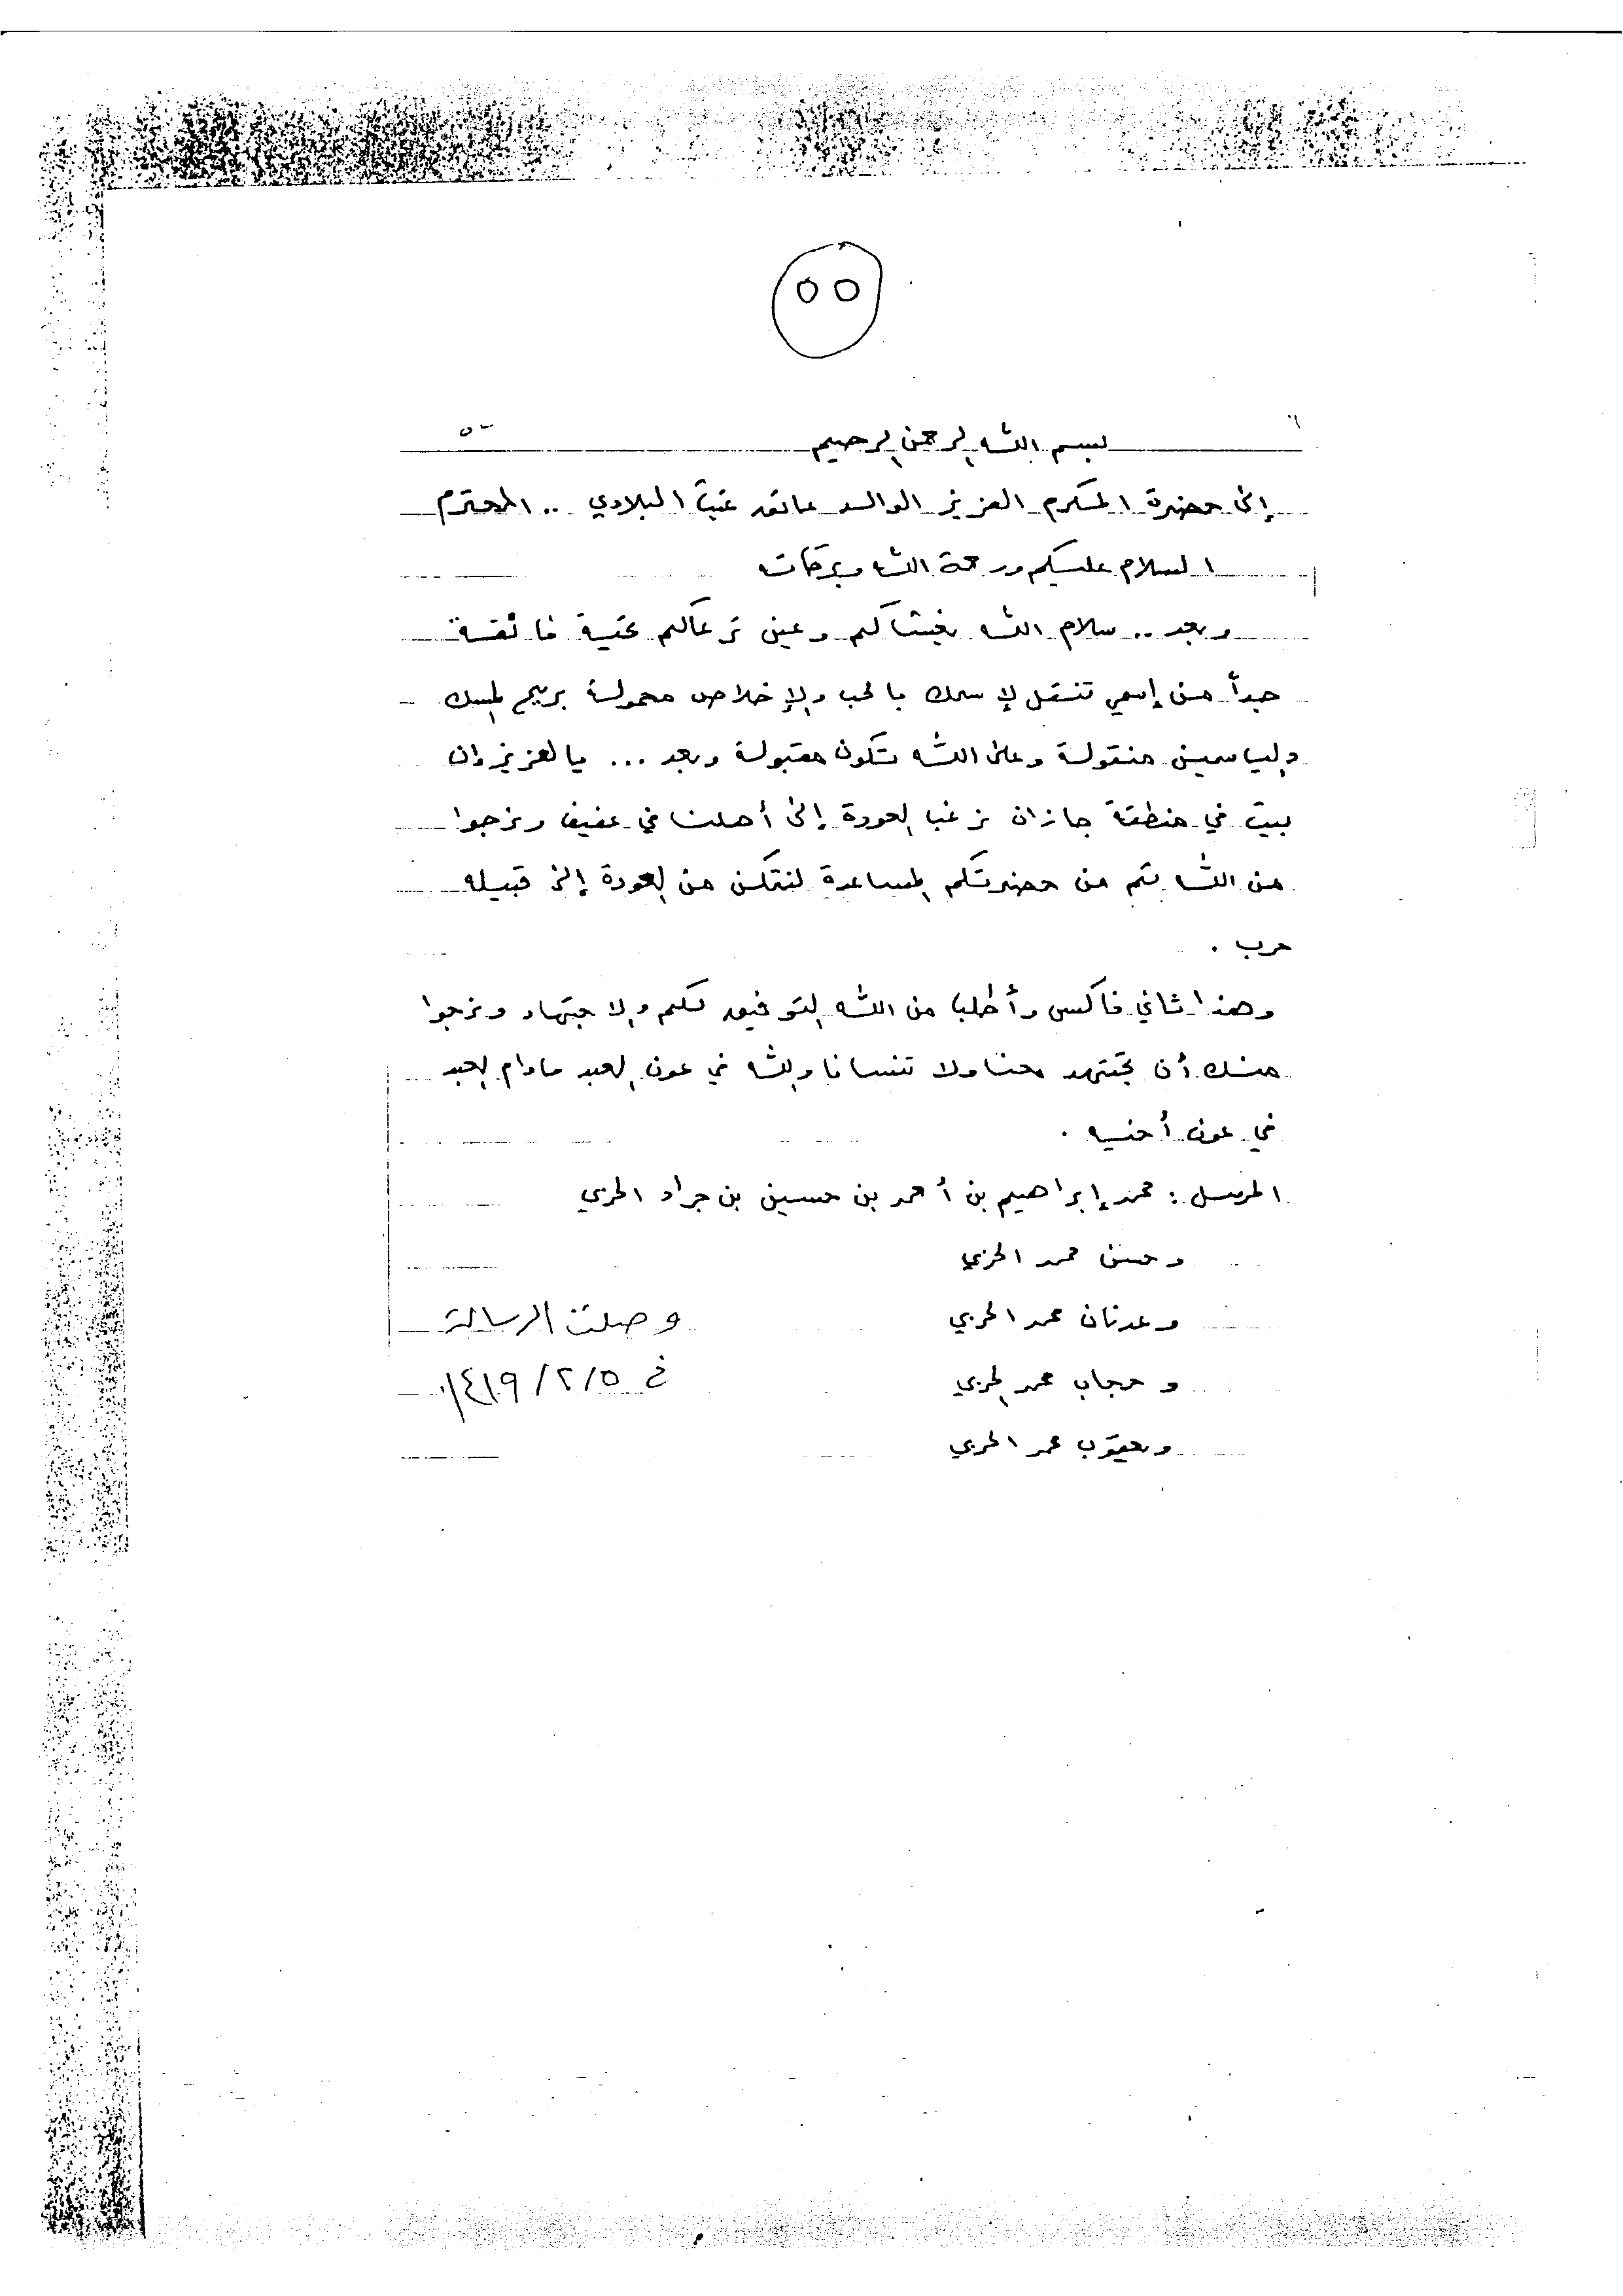 ٥٥
بسم الله الرحمن الرحيم
إلى حضرة المكرم العزيز الوالد عاتق غيث البلادي .. المحترم
السلام عليكم ورحمة الله وبركاته
وبعد .. سلام الله يغشاكم وعين ترعاكم تحية فائقة
جداً من إسمي تنتقل لإسمك بالحب والإخلاص محمولة بريح المسك
والياسمين منقولة وعلى الله تكون مقبولة وبعد ... يالعزيز
بيت في منطقة جازان نرغب العودة إلى أهلنا في عفيف ونرجوا
من الله ثم من حضرتكم المساعدة لنتمكن من العودة إلى قبيله
حرب .
وهذا ثاني فاكس وأطلب من الله التوفيق لكم والاجتهاد ونرجوا
منك أن تجتهد معنا ولا تنسانا والله في عون العبد مادام العبد
في عون أخيه .
المرسل : محمد إبراهيم بن أحمد بن حسين بن جراد الحربي
وحسن محمد الحربي
وعدنان محمد الحربي
وصلت الرسالة
وحجاب محمد الحربي
في ١٤١٩/٢/٥
ويعقوب محمد الحربي